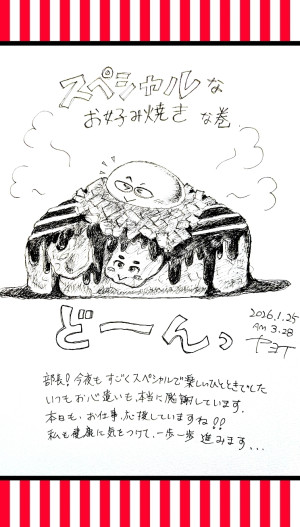 スペシャルな
お好み焼きな巻
どーんっ
2016.1.25
AM 3:28
ヤヨイ
部長!今夜も すごくスペシャルで楽しいひとときでした
いつもお心遣いも、本当に感謝しています。
本日も、お仕事、応援していますね!!
私も健康に気をつけて、一歩一歩 進みます...